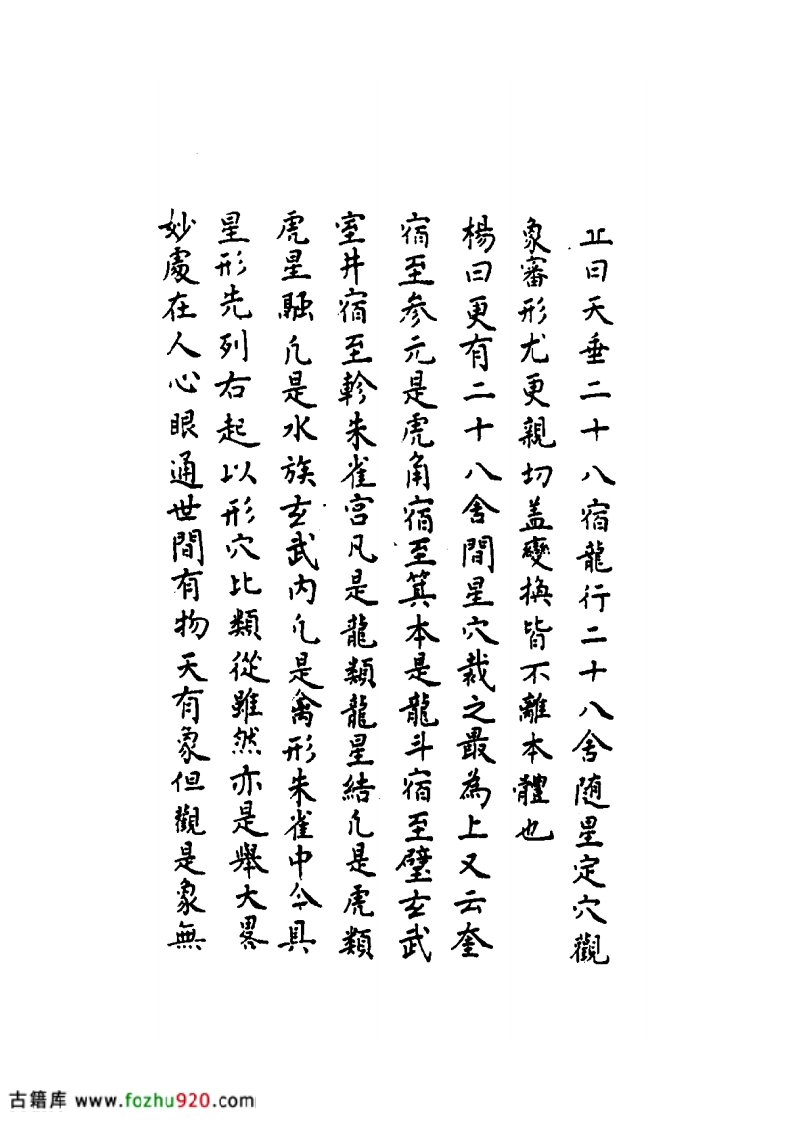 丘曰天垂二十八宿龍行二十八舍随星定穴觀
象審形尤更親切盖變換皆不離本體也
楊曰更有二十八舍間星穴裁之最為上又云奎
宿至参元是虎角宿至箕本是龍斗宿至壁玄武
室井宿至軫朱雀宫凡是龍類龍星結凡是虎類
虎星驅凡是水族玄武内凡是禽形朱雀中今具
星形先列右起以形穴比類從雖然亦是舉大畧
妙處在人心眼通世間有物天有象但觀是象無
古籍库 www.fozhu920.com